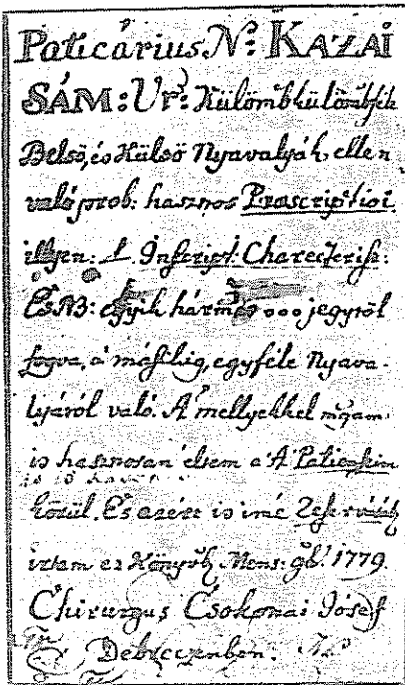 Paticárius N: KAZAI
SÁM: Ur: Külömbkülömbféle
Belső, és Külső Nyavalyák, ellen
való prob: hasznos Præscriptioi
illyen: L. Inscript: Charecteris:
És NB: egyik hármas ooo jegyről
fogva, á másikig, egyféle Nyava-
lyáról való. A' mellyekkel magam
is hasznosan éltem a' Patiensim
közül. És azért is imé
irtam ez Könyvb Mens: 9b! 1779.
Chirurgus Csokonai Jósef
Debreczenben.